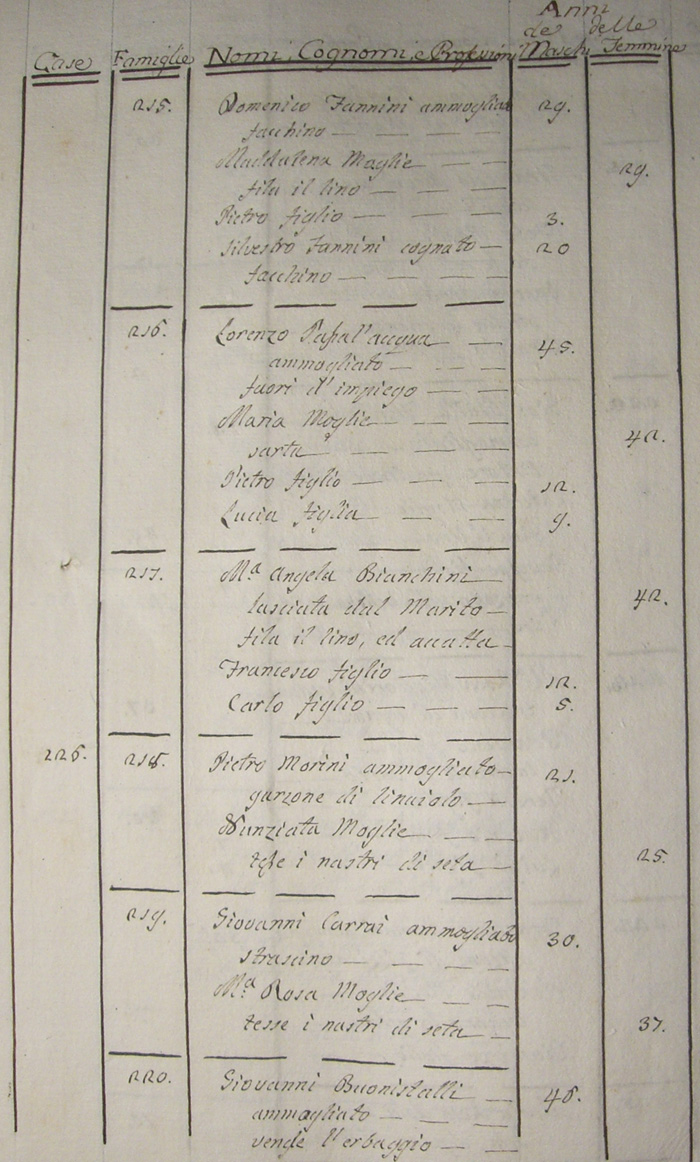 Anni
de Maschi delle Femmine
Case Famiglie Nomi, Cognomi, e Professioni
215. Domenico Fannini ammogliato 29.
facchino
Maddalena Moglie 29.
fila il lino
Pietro figlio 3.
Silvestro Fannini cognato 20
facchino
216. Lorenzo Papal'acqua 45.
ammogliato
fuori d'impiego
Maria Moglie 42.
sarta
Pietro figlio 12.
Lucia figlia 9.
217. M.a Angela Bianchini 42.
lasciata dal Marito
fila il lino, ed accatta
Francesco figlio 12.
Carlo figlio 5.
226. 218. Pietro Morini ammogliato 21.
garzone di linaiolo
Nunziata Moglie 25.
tesse i nastri di seta
219. Giovanni Carrai ammogliato 30.
strascino
M.a Rosa Moglie 37.
tesse i nastri di seta
220. Giovanni Buonistalli 46.
ammogliato
vende l'erbaggio